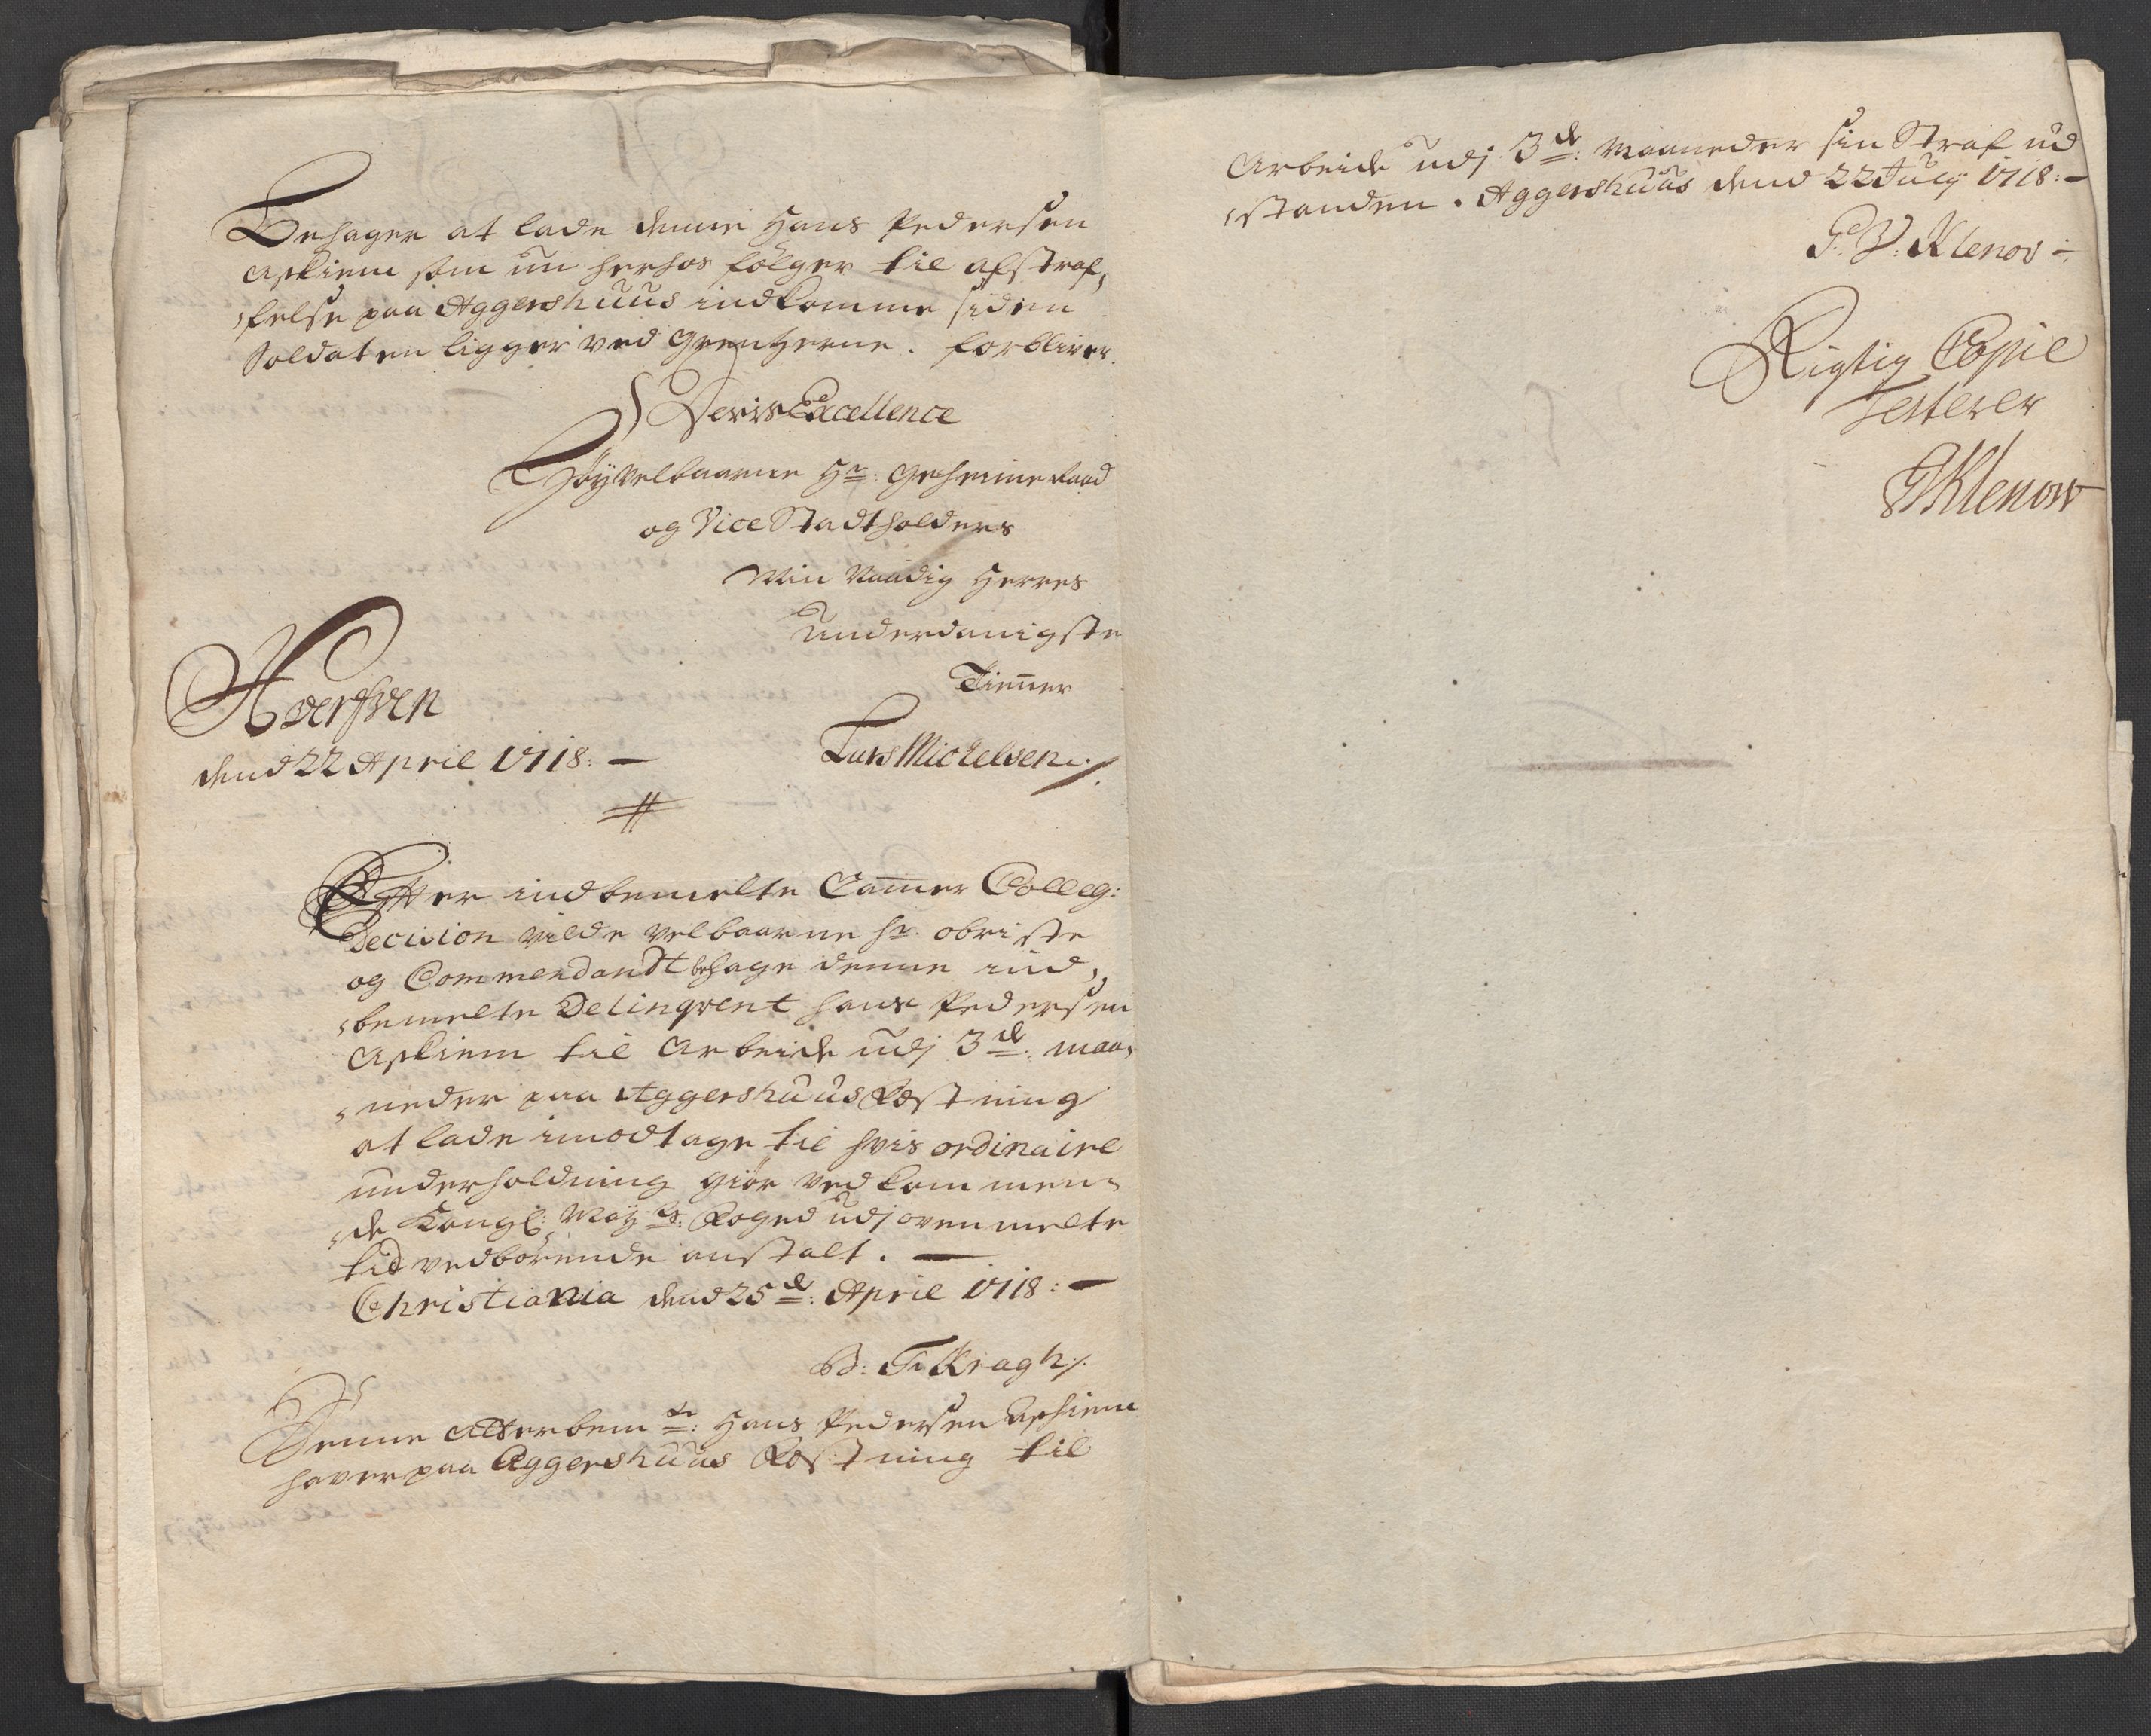 Behager at lade denne Hans Pedersen
Askiem som nu herhos følger til afstraf,
,felse paa Aggershuus indkomme siden
Soldaten ligger ved Grentzerne. forbliver
Deris Excellence
Høyvelbaarne Hr: Geheime Raad
og Vice Stadtholders
Min Naadig Herres
Underdanigste
Tienner
dend 22 April 1718: —
Lars Michelsen ./.
Efter indbemelte Cammer Colleg:
Decision vilde velbaarne hr. obriste
og Commendandt behage denne ind,
,bemelte Delinqvent hans Pedersen
Askiem til Arbeide udj 3de: maa,
,neder paa Aggershuus Festning
at lade imodtage til hvis ordinaire
underholdning giør vedkommen,
,de Kongl: May ts: Foged udj ovenmelte
tid vedbørende anstalt. —
Christiania dend 25de: April 1718: —
B: F. Kragh ./.
Denne Atterbem te: Hans Pedersen Askiem
haver paa Aggershuus Festning til
Arbeide udj 3de: Maaneder sin Straf ud
,standen. Aggershuus dend 22 July 1718: —
P: V: Klenov ÷
Rigtig Copie
Testerer
PVKlenow